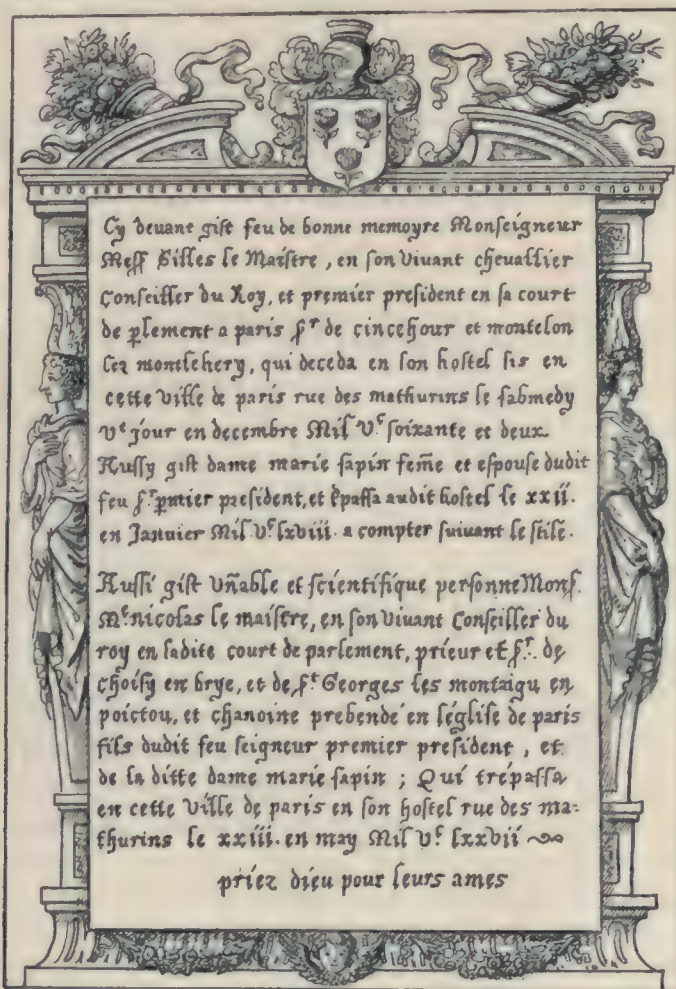 Cy devant gist feu de bonne memoyre Monseigneur
Messʳ Gilles le Maistre, en son vivant chevallier
Conseiller du Roy, et premier president en sa court
de p̱lement a paris sʳ de cincehour et montelon
lez montlehery, qui deceda en son hostel sis en
cette ville de paris rue des mathurins le sabmedy
vᵉ jour en decembre Mil vᶜ soixante et deux.
Aussy gist dame marie sapin fem̄e et espouse dudit
feu sʳ p̱mier president, et t̃passa audit hostel le xxii.
en Janvier Mil vᶜ lxviii. a compter suivant le stile.
Aussi gist vn̄able et scientifique personne Monsʳ.
Mᵉ nicolas le maistre, en son vivant Conseiller du
roy en ladite court de parlement, prieur et sʳ. de
choisy en brye, et de sᵗ Georges les montaigu en
poictou, et chanoine prebendé en l'église de paris
fils dudit feu seigneur premier president, et
de la ditte dame marie sapin ; Qui trépassa
en cette ville de paris en son hostel rue des ma=
thurins le xxiii. en may Mil vᶜ lxxvii
priez dieu pour leurs ames